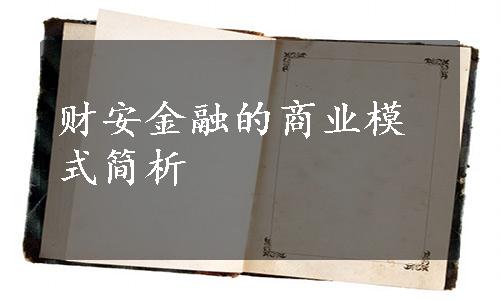 财安金融的商业模
式简析